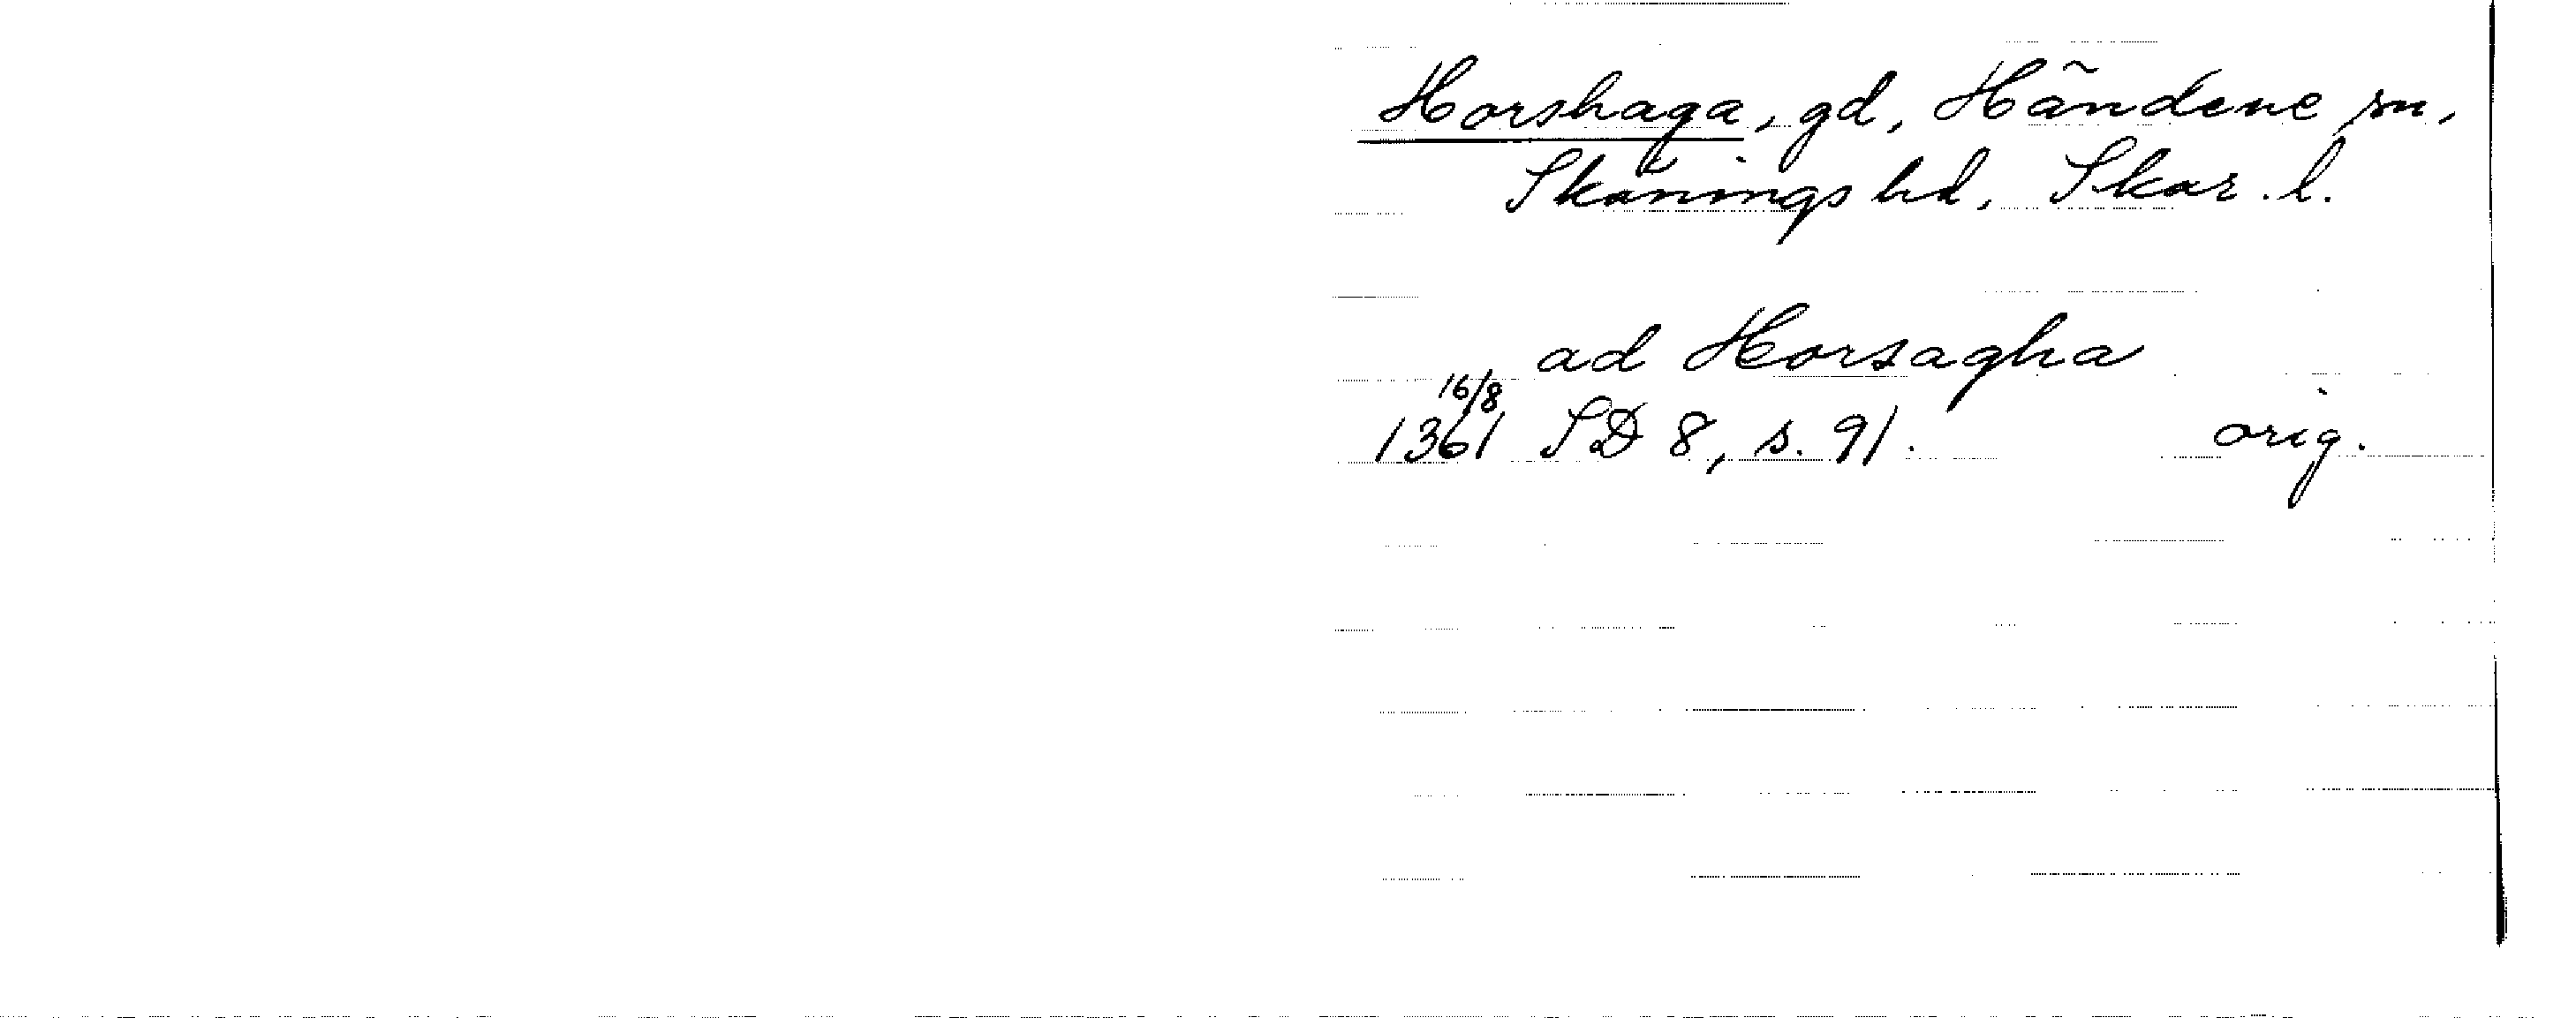 Horshaga, gd, Händene sn,
Skånings hd, Skar. l.
ad Horsagha
16/8
1361 SD 8, s. 91. orig.